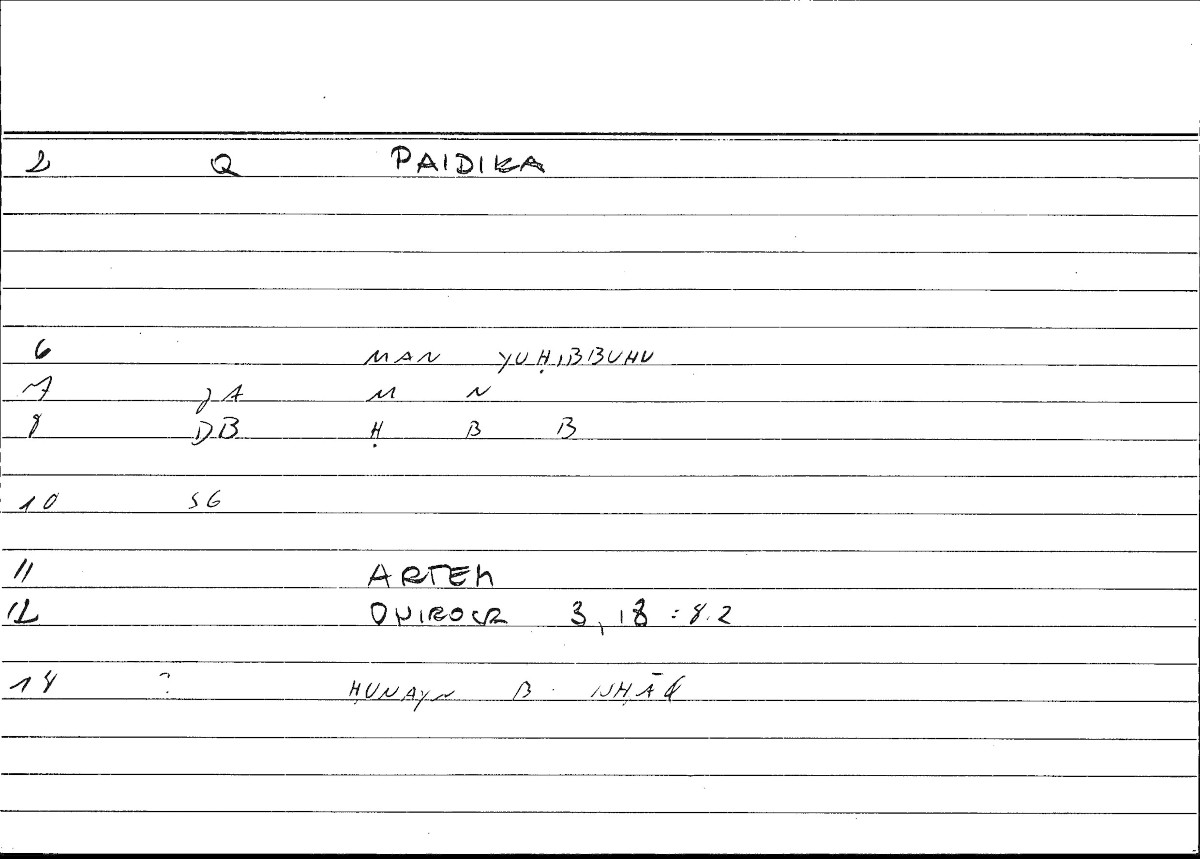 2 Q PAIDIKA
6 MAN YUḤIBBUHU
7 JA M N
8 DB Ḥ B B
10 SG
11 ARTEM
12 ONIROCR 3,18:8.2
14 ? ḤUNAYN B. ISḤĀQ